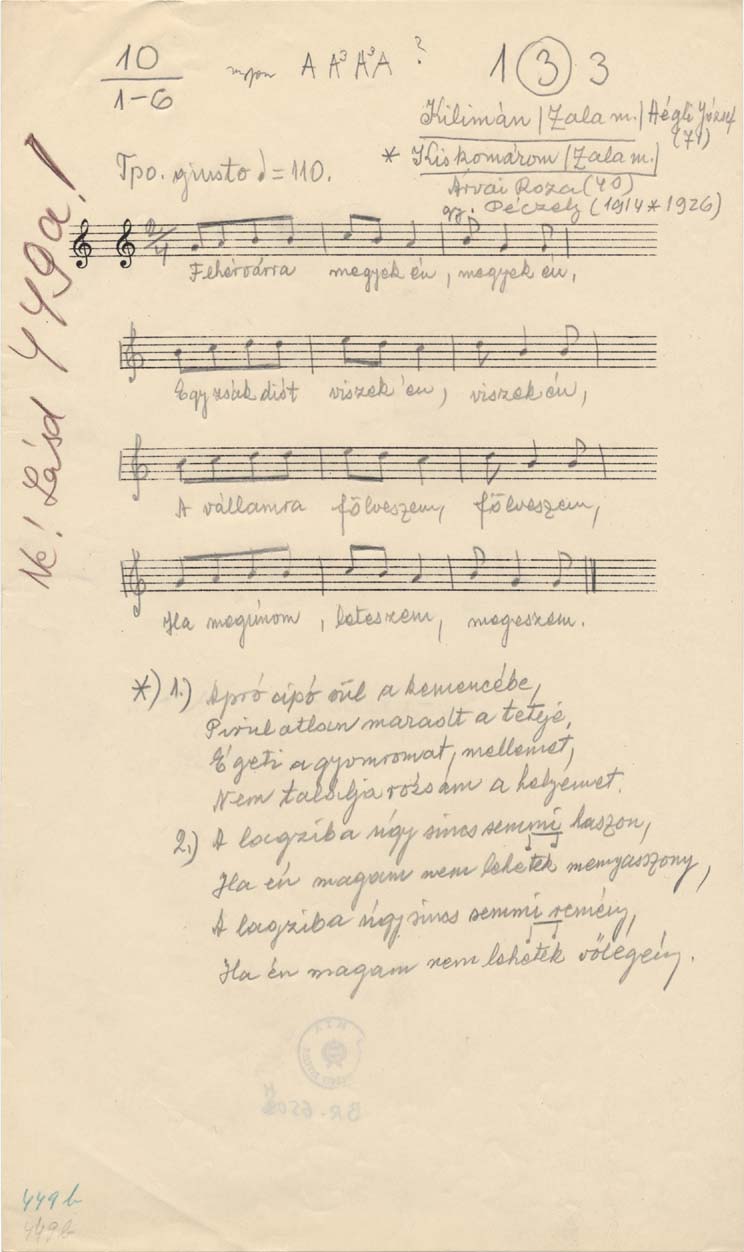 10
1-6
A A³ A³ A ?
1 3 3
Kilimán /Zala m./ Hégli József
(71)
* Kiskomárom /Zala m./
Árvai Roza (40)
gy. Péczely (1914 * 1926)
Tpo. giusto ♩=110.
Ne! Lásd 449a!
2/4
Fehérvárra megyek én, megyek én,
Egy zsák diót viszek én, viszek én,
A vállamra fölveszem, fölveszem,
Ha megúnom, leteszem, megeszem.
*) 1.) Apró cipó sül a kemencébe,
Pirulatlan maradt a teteje,
Égeti a gyomromat, mellemet,
Nem találja rózsám a helyemet.
2.) A lagziba úgy sincs semmi haszon,
Ha én magam nem lehetek menyasszony,
A lagziba úgy sincs semmi remény,
Ha én magam nem lehetek vőlegény.
BR-650
449b
449b